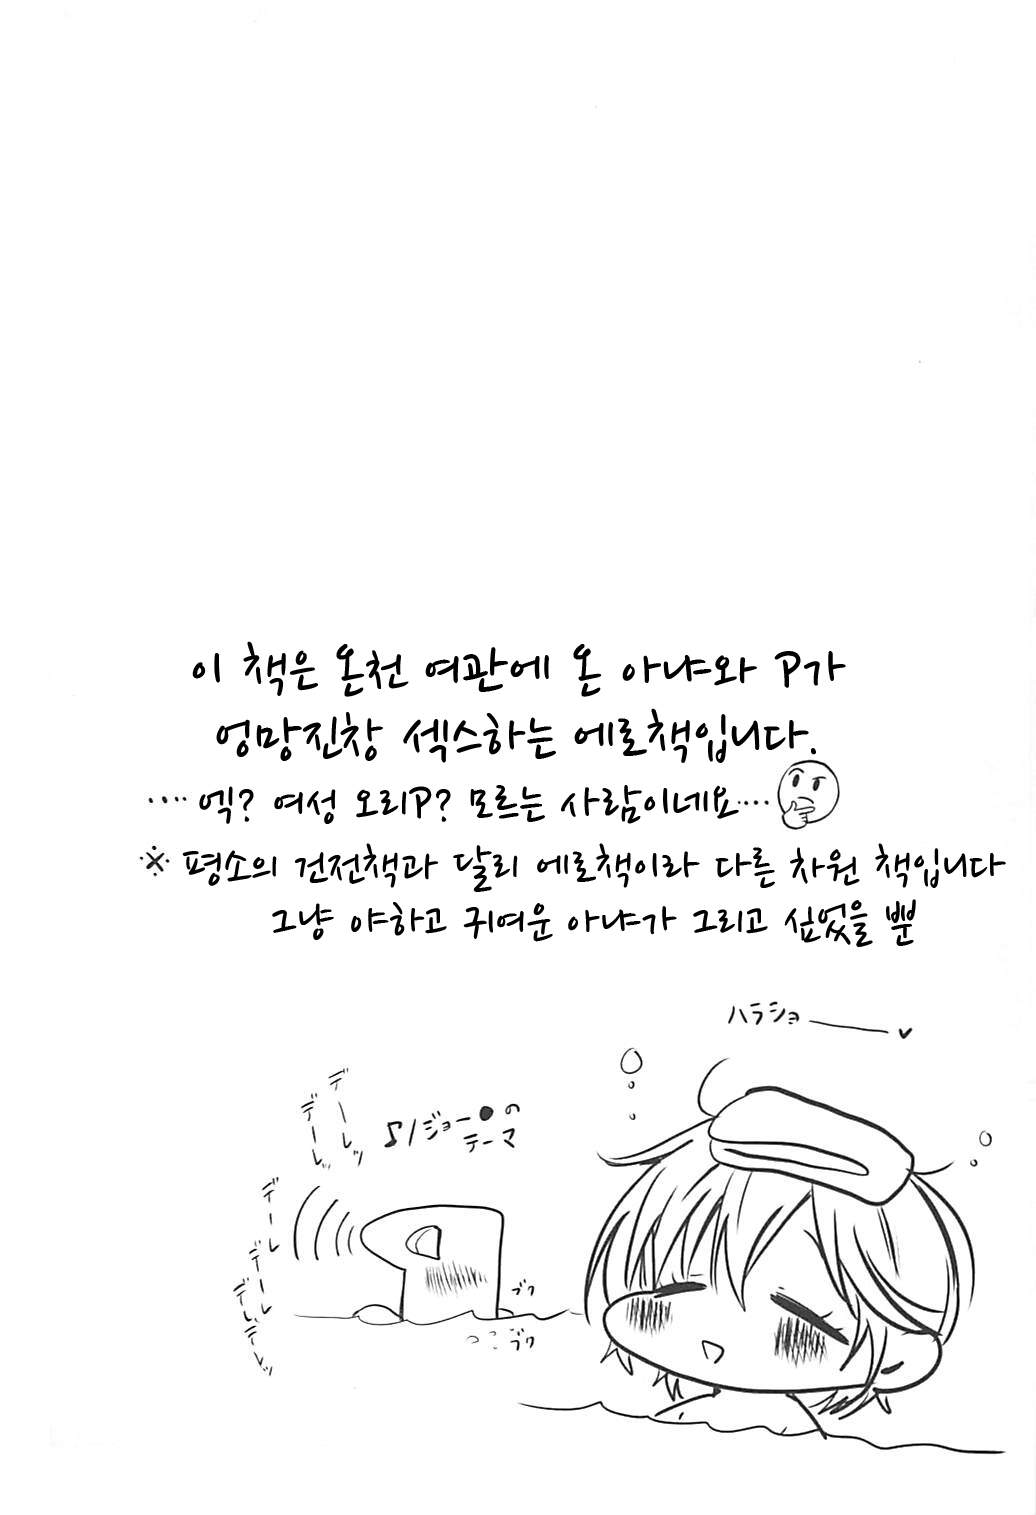 이 책은 온천 여관에 온 아냐와 P가
엉망진창 섹스하는 에로책입니다.
‥‥엑? 여성 오리P? 모르는 사람이네요‥‥
※ 평소의 건전책과 달리 에로책이라 다른 차원 책입니다
그냥 야하고 귀여운 아냐가 그리고 싶었을 뿐
ハラショ――♥
♪ジョー●の
テーマ
デーレッ
デーレッ
デーレ
デーレ
デレデレッ
ブク
ブク